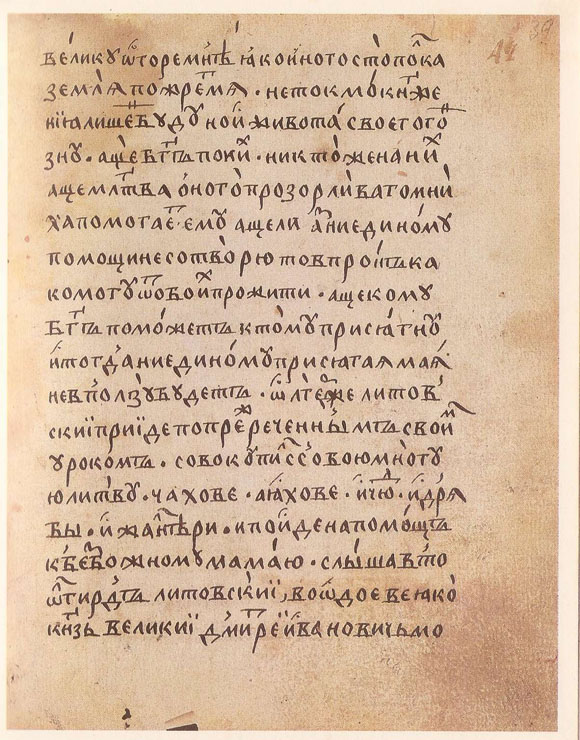 велику ѿтореми҆ѣ ꙗ҆кои҆ногостопоⷦ҇ка
землѧпожреⷮмѧ · нетокмокнⷤ҇же
нїалишеⷤбꙋдꙋ ной животасвоегоⷮго
знꙋ · ащебг҃ъпокиⷯ · никтоженаниⷯ
ащемлⷭ҇тва оногопрозорливатомни
хапомогаеⷮ · емꙋ ащели аⷥниедино́мꙋ
помощинесотворютовпроⷨтыка
комогꙋⷮѡбоиⷯпрожити · ащекомꙋ
бг҃ъ поможетъ ктомꙋприсѧгнꙋ
и҆тогⷣаниедино́мꙋприсѧгаꙗмаꙗ
невпо́лзꙋбꙋдетъ · ѡⷧлгеⷬ҇ⷣже литовⸯ
скїи прїидепопреⷤреченнымъ своиⷨ
ꙋрокомъ · совокꙋпиⷭ҇ссобоюмногꙋ
юлитвꙋ · чахове · лѧхове · ичюⷣ · идрѧ
вы · ижаⷨтѣри · ипои҆денапомощъ
кбеⷥбожномꙋмама́ю · слышавⷤто
ѿгирдъ литовскїи, воѡдоевеꙗко
кн҃зь великїи дми́ⷮрей иванови́чьмо
39
44